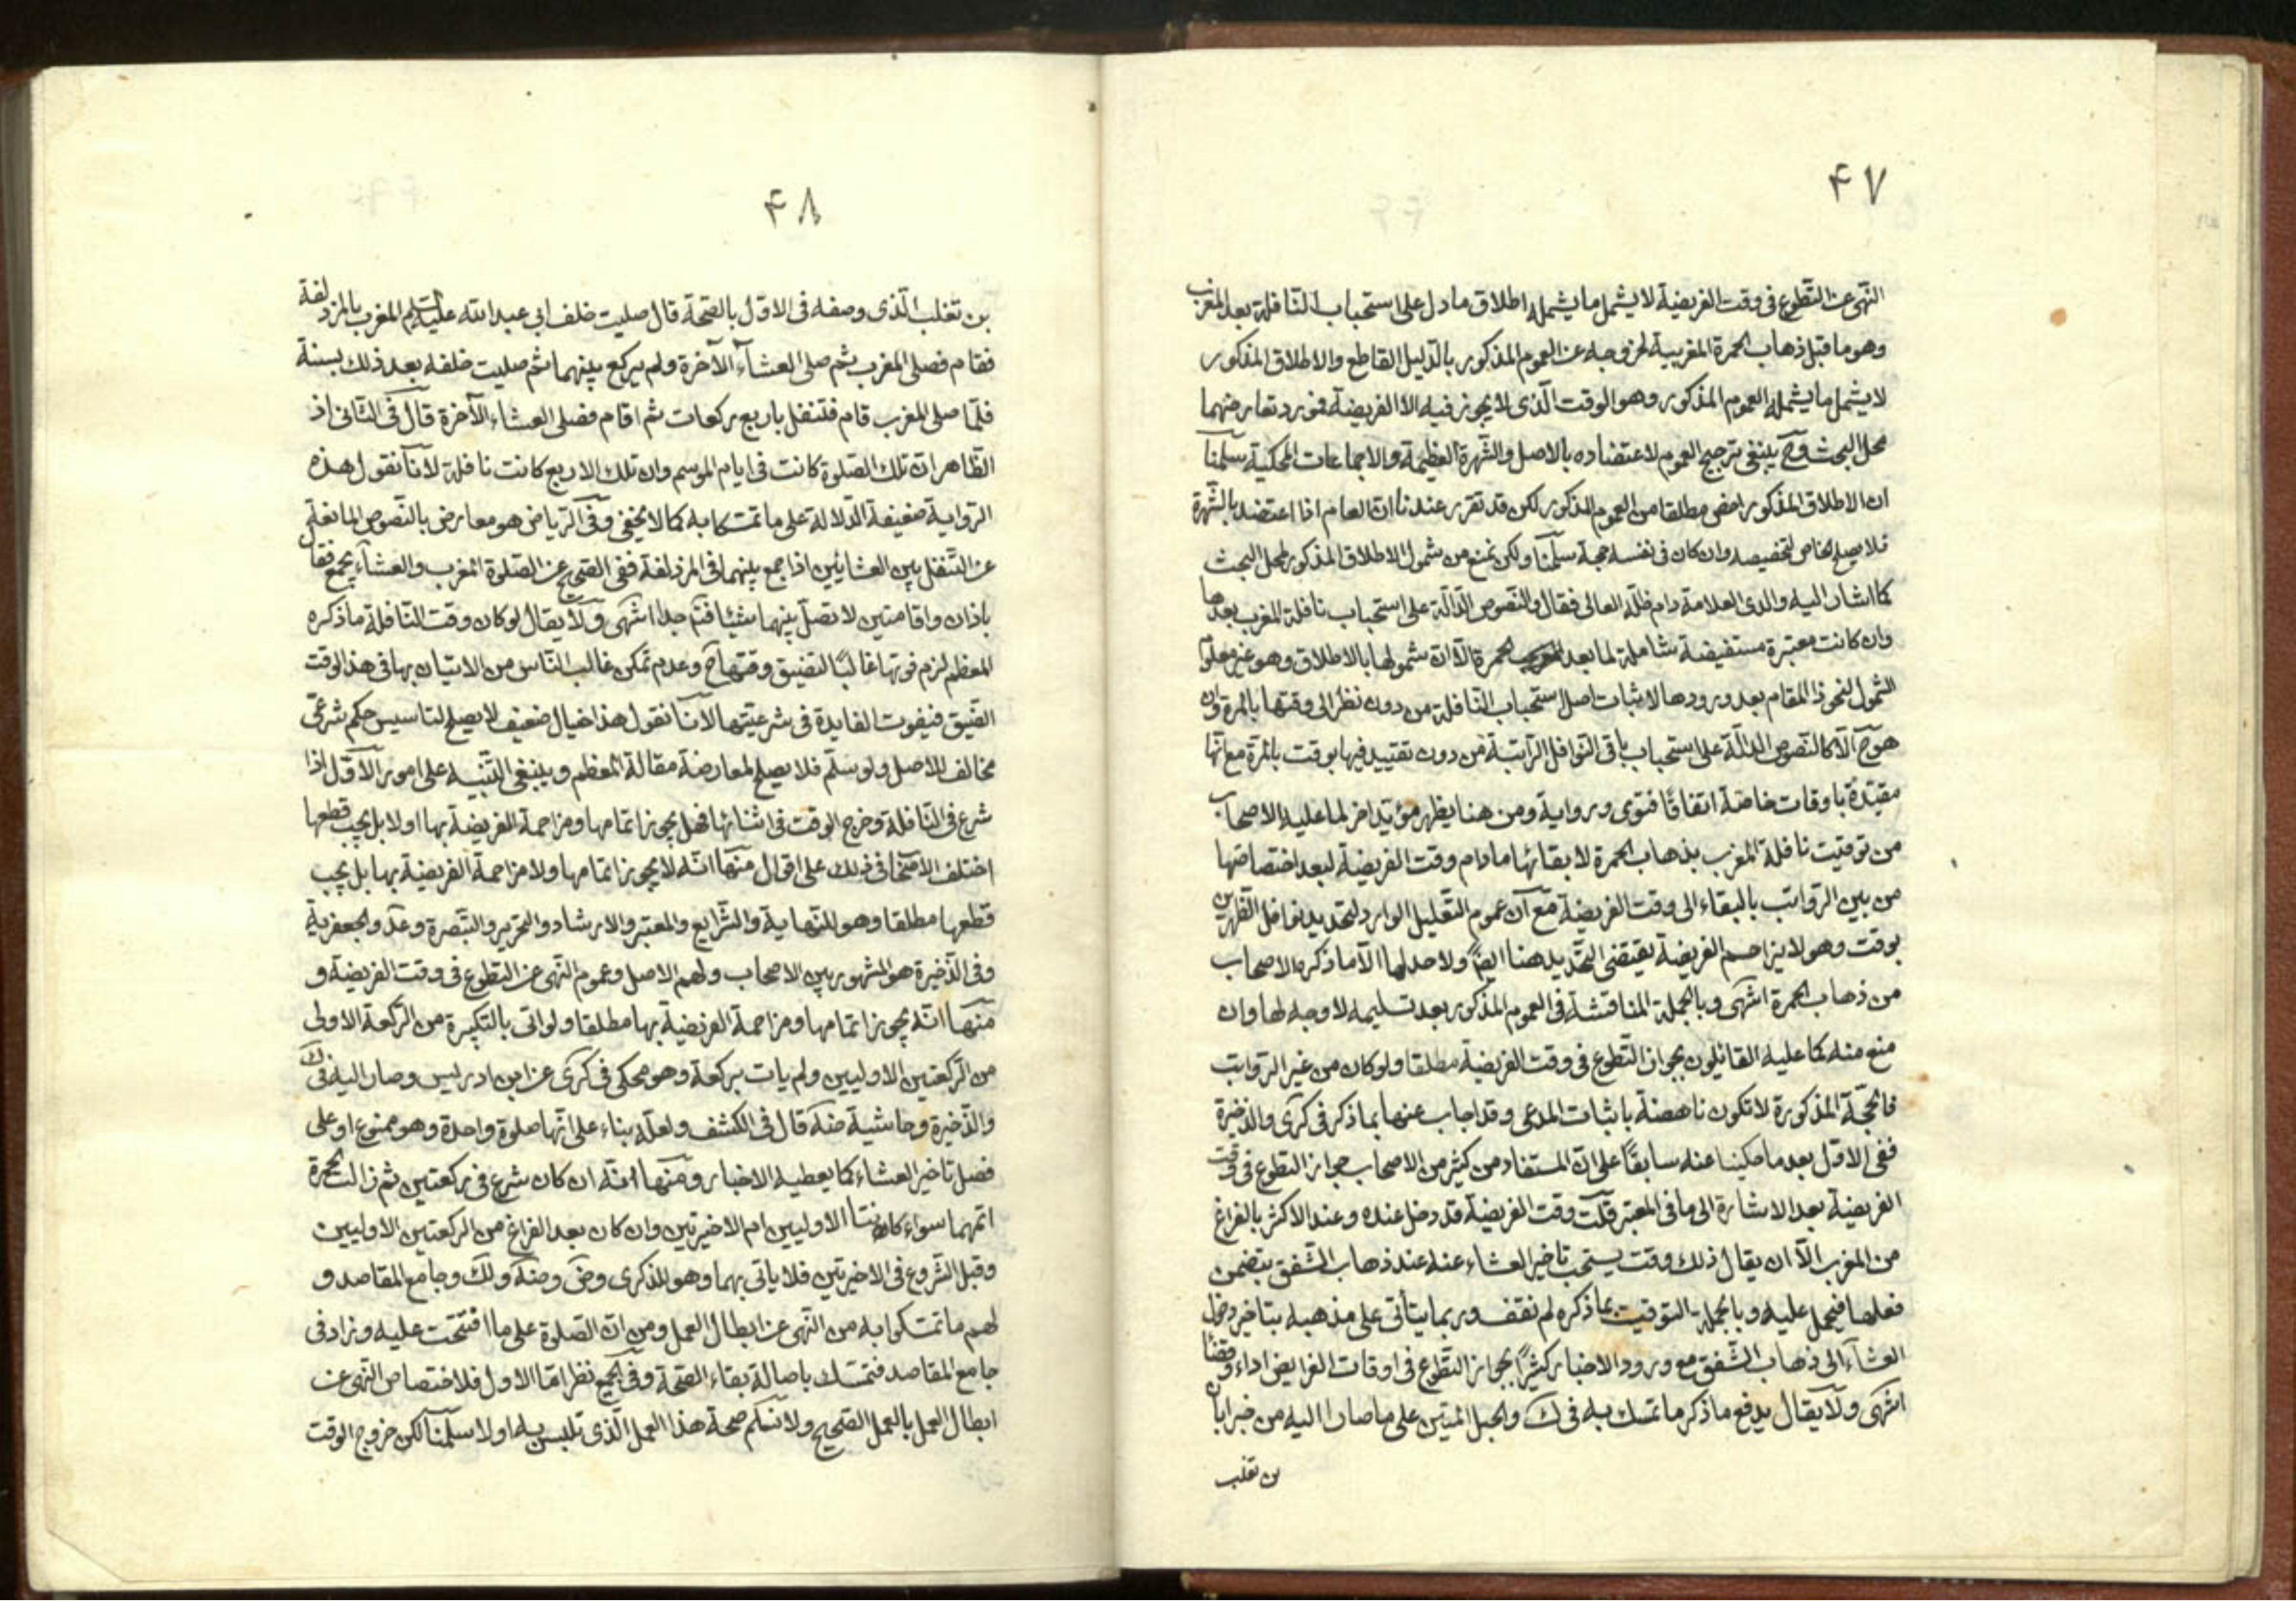 ۴۷
النهى عن التطوع فى وقت الفريضة لا يشمل ما يشمله اطلاق ما دل على استحباب النافلة بعد المغرب
وهو ما قبل ذهاب الحمرة المغربية لخروجه عن العموم المذكور بالدليل القاطع والاطلاق المذكور
لا يشمل ما يشمله العموم المذكور وهو الوقت الذى لا يجوز فيه الا الفريضة فمورد تعارضهما
محل البحث وح ينبغى ترجيح العموم لاعتضاده بالاصل والشهرة العظيمة والاجماعات المحكية سلمنا
ان الاطلاق المذكور اخص مطلقا من العموم المذكور لكن قد تقرر عندنا ان العام اذا اعتضد بالشهرة
فلا يصلح الخاص لتخصيصه وان كان فى نفسه حجة سلمنا ولكن نمنع من شمول الاطلاق المذكور لمحل البحث
كما اشار اليه والدى العلامة دام ظله العالى فقال والنصوص الدالة على استحباب نافلة المغرب بعدها
وان كانت معتبرة مستفيضة شاملة لما بعد الحمرة الا ان شمولها بالاطلاق وهو غير معلوم
الشمول لنحو ذا المقام بعد ورودها لاثبات اصل استحباب النافلة من دون نظر الى وقتها بالمرة وان
هو ح الا كالنصوص الدالة على استحباب باقى النوافل الراتبة من دون تقييد فيها بوقت بالمرة مع انها
مقيدة باوقات خاصة اتفاقا فتوى ورواية ومن هنا يظهر مؤيد اخر لما عليه الاصحاب
من توقيت نافلة المغرب بذهاب الحمرة لا بقائها ما دام وقت الفريضة لبعد اختصاصها
من بين الرواتب بالبقاء الى وقت الفريضة مع ان عموم التعليل الوارد لتحديد نوافل الظهرين
بوقت وهو لا يزاحم الفريضة يقتضى التحديد هنا ايضا ولا حد لها الا ما ذكره الاصحاب
من ذهاب الحمرة انتهى وبالجملة المناقشة فى العموم المذكور بعد تسليمه لا وجه لها وان
منع منه كما عليه القائلون بجواز التطوع فى وقت الفريضة مطلقا ولو كان من غير الرواتب
فالحجة المذكورة لا تكون ناهضة باثبات المدعى وقد اجاب عنها بما ذكر فى كرى والذخيرة
ففى الاول بعد ما حكينا عنه سابقا على ان المستفاد من كثير من الاصحاب جواز التطوع فى وقت
الفريضة بعد الاشارة الى ما فى المعتبر قلت وقت الفريضة قد دخل عنده وعند الاكثر بالفراغ
من المغرب الا ان يقال ذلك وقت يستحب تاخير العشاء عنه عند ذهاب الشفق يتضمن
فعلها فيحمل عليه وبالجملة التوقيت بما ذكره لم نقف وربما يتأتى على مذهبه بتاخير دخول
العشاء الى ذهاب الشفق مع ورود الاخبار كثيرا بجواز التطوع فى اوقات الفرايض اداء وقضاء
انتهى ولا يقال يدفع ما ذكر ما تمسك به فى ك والحبل المتين على ما صارا اليه من خبر ابان
بن تغلب
۴۸
بن تغلب الذى وصفه فى الاول بالصحة قال صليت خلف ابى عبد الله عليه السلم المغرب بالمزدلفة
فقام فصلى المغرب ثم صلى العشاء الآخرة ولم يركع بينهما ثم صليت خلفه بعد ذلك بسنة
فلما صلى المغرب قام فتنفل باربع ركعات ثم اقام فصلى العشاء الآخرة قال فى الثانى اذ
الظاهر ان تلك الصلوة كانت فى ايام الموسم وان تلك الاربع كانت نافلة لانا نقول هذه
الرواية ضعيفة الدلالة على ما تمسكا به كما لا يخفى وفى الرياض هو معارض بالنصوص المانعة
عن التنفل بين العشائين اذا جمع بينهما فى المزدلفة ففى الصحيح عن الصلوة المغرب والعشاء بجمع فقال
باذان واقامتين لا تصل بينهما شيئا فتم جدا انتهى ولا يقال لو كان وقت النافلة ما ذكره
المعظم لزم فوتها غالبا لتضييق وقتها ح وعدم تمكن غالب الناس من الاتيان بها فى هذا الوقت
الضيق فيفوت الفايدة فى شرعيتها لانا نقول هذا خيال ضعيف لا يصلح لتاسيس حكم شرعى
مخالف للاصل ولو سلم فلا يصلح لمعارضة مقالة المعظم وينبغى التنبيه على امور الاول اذا
شرع فى النافلة وخرج الوقت فى اثنائها فهل يجوز اتمامها ومزاحمة الفريضة بها او لا بل يجب قطعها
اختلف الاصحاب فى ذلك على اقوال منها انه لا يجوز اتمامها ولا مزاحمة الفريضة بها بل يجب
قطعها مطلقا وهو للنهاية والشرايع والمعتبر والارشاد والتحرير والتبصرة وعد والجعفرية
وفى الذخيرة هو المشهور بين الاصحاب ولهم الاصل وعموم النهى عن التطوع فى وقت الفريضة و
منها انه يجوز اتمامها ومزاحمة الفريضة بها مطلقا ولو اتى بالتكبيرة من الركعة الاولى
من الركعتين الاوليين ولم يات بركعة وهو محكى فى كرى عن ابن ادريس وصار اليه فى ك
والذخيرة وحاشية ضه قال فى الكشف ولعله بناء على انها صلوة واحدة وهو ممنوع او على
فضل تاخير العشاء كما يعطيه الاخبار ومنها انه ان كان شرع فى ركعتين ثم زالت الحمرة
اتمهما سواء كانتا الاوليين ام الاخيرتين وان كان بعد الفراغ من الركعتين الاوليين
وقبل الشروع فى الاخيرتين فلا ياتى بهما وهو للذكرى وض وضه ولك وجامع المقاصد و
لهم ما تمسكوا به من النهى عن ابطال العمل ومن ان الصلوة على ما افتتحت عليه وزاد فى
جامع المقاصد فتمسك باصالة بقاء الصحة وفى الجميع نظر اما الاول فلاختصاص النهى عن
ابطال العمل بالعمل الصحيح ولا نسلم صحة هذا العمل الذى تلبس به او لا سلمنا لكن خروج الوقت